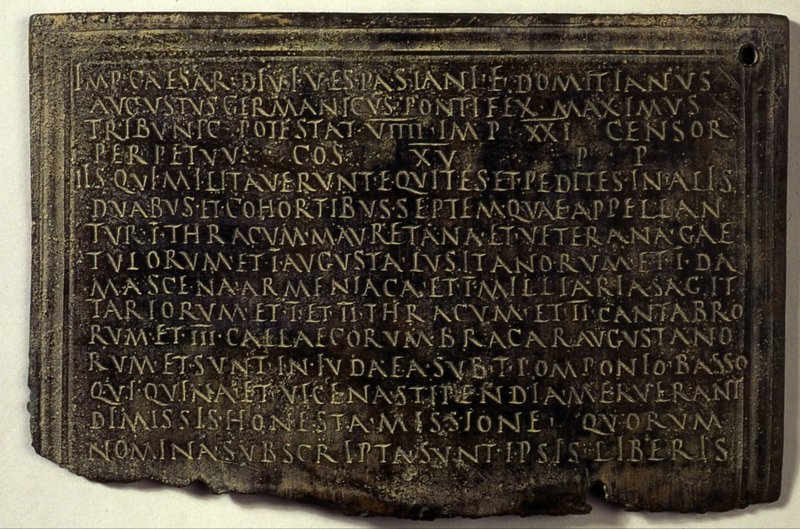 IMP·CAESAR·DIVI·VESPASIANI·F·DOMITIANVS
AVGVSTVS·GERMANICVS·PONTIFEX MAXIMVS
TRIBVNIC·POTESTAT·VIIII·IMP·XXI CENSOR
PERPETVVS COS XV P P
IIS·QVI·MILITAVERVNT·EQVITES·ET·PEDITES·IN·ALIS
DVABVS·ET·COHORTIBVS·SEPTEM·QVAE·APPELLAN
TVR·I·THRACVM·MAVRETANA·ET·VETERANA·GAE
TVLORVM·ET·I·AVGVSTA·LVSITANORVM·ET·I·DA
MASCENA·ARMENIACA·ET·I·MILLIARIA·SAGIT
TARIORVM·ET·I·ET·II·THRACVM·ET·II·CANTABRO
RVM·ET·III·CALLAECORVM·BRACARAVGVSTANO
RVM·ET·SVNT·IN·IVDAEA·SVB·T·POMPONIO·BASSO
QVI·QVINA·ET·VICENA·STIPENDIA·MERVERANT
DIMISSIS·HONESTA·MISSIONE· QVORVM
NOMINA·SVBSCRIPTA·SVNT·IPSIS·LIBERIS